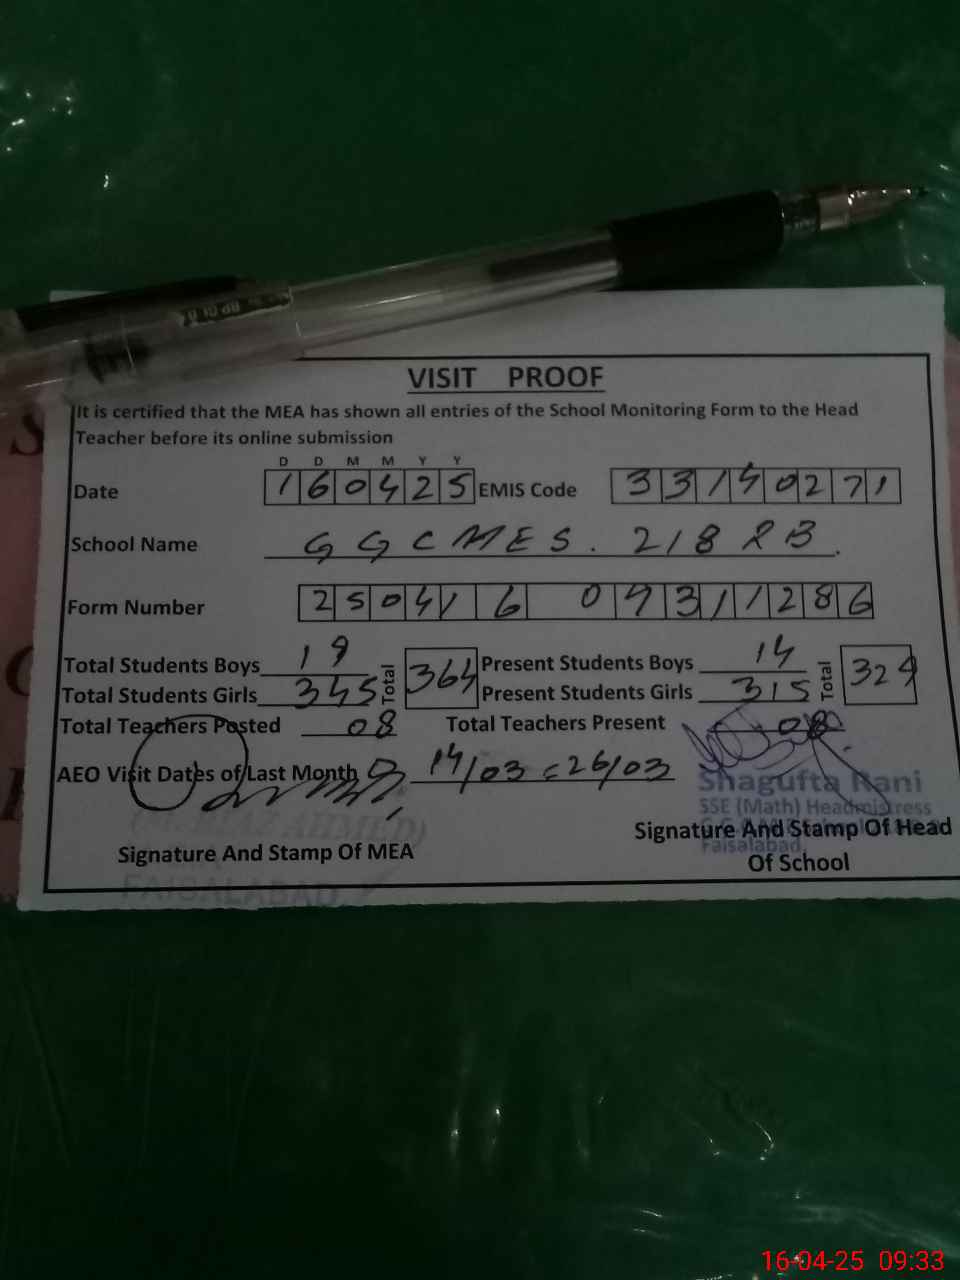 VISIT PROOF
It is certified that the MEA has shown all entries of the School Monitoring Form to the Head
Teacher before its online submission
D D M M Y Y
Date 160425 EMIS Code 33140271
School Name GGCMES. 218 RB.
Form Number 250416 09311286
Total Students Boys 19 Total 364 Present Students Boys 14 Total 329
Total Students Girls 345 Present Students Girls 315
Total Teachers Posted 08 Total Teachers Present 08
AEO Visit Dates of Last Month 14/03 26/03
Shagufta Rani
SSE (Math) Headmistress
Faisalabad
Signature And Stamp Of MEA
(MUMTAZ AHMED)
FAISALABAD
Signature And Stamp Of Head
Of School
16-04-25 09:33